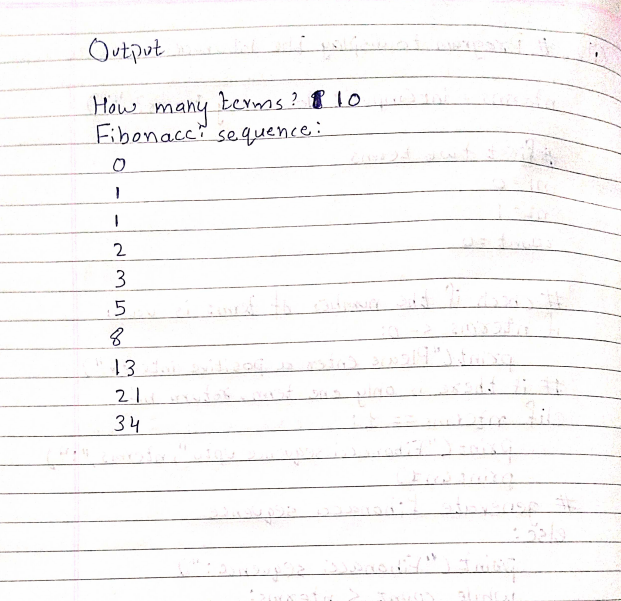 Output
How many terms? 10
Fibonacci sequence:
0
1
1
2
3
5
8
13
21
34